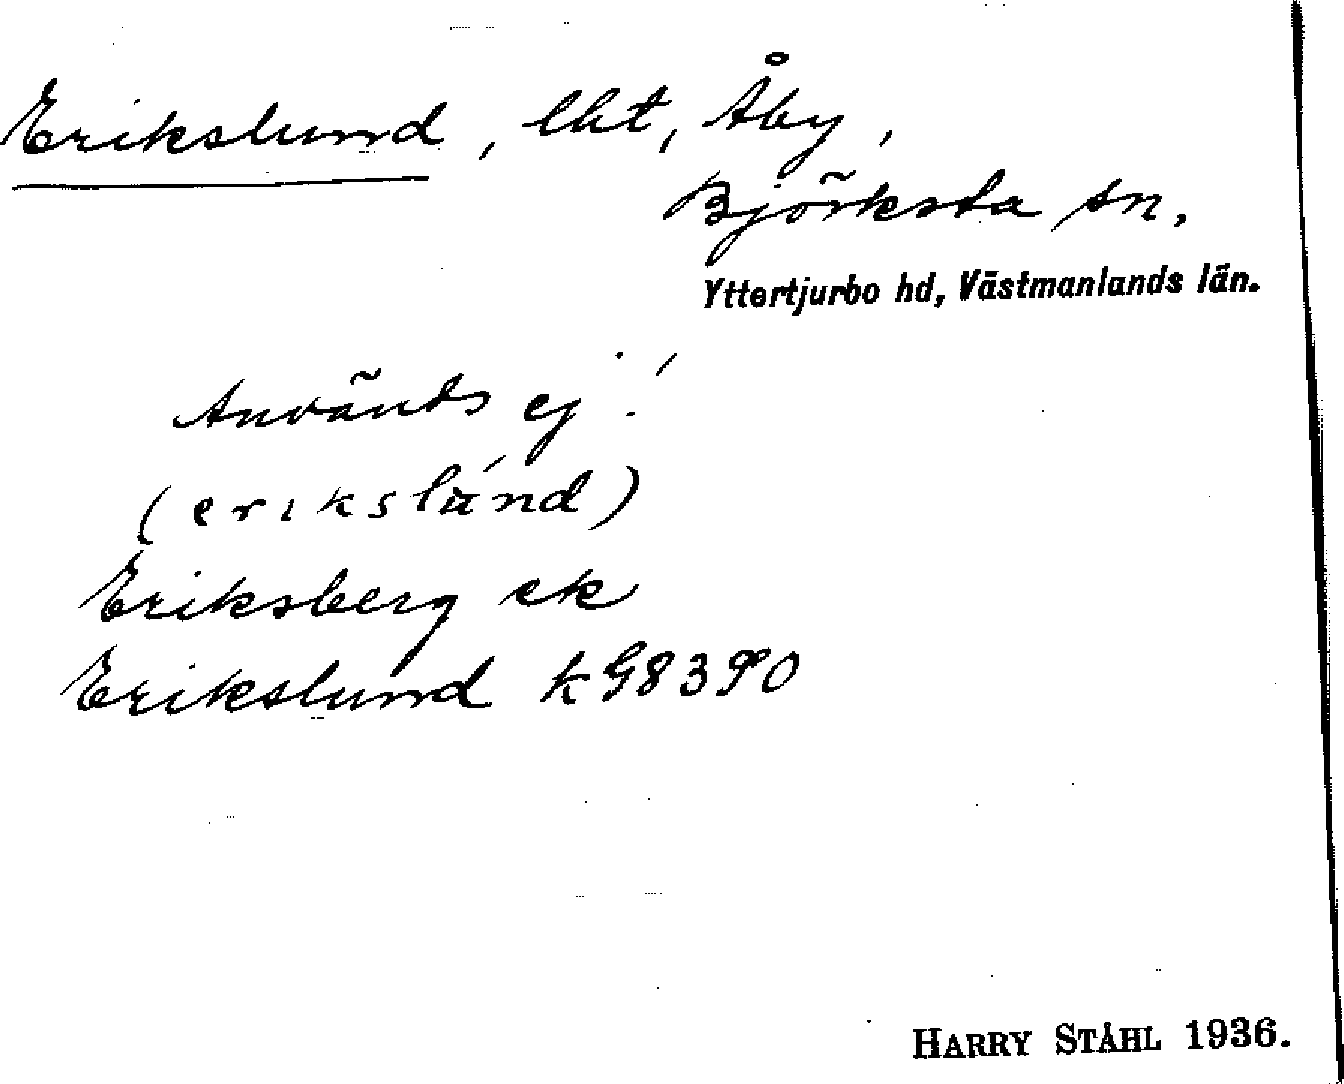 Erikslund, lht, Åby,
Björksta sn.
Yttertjurbo hd, Västmanlands län.
Används ej!
(erikslúnd)
Eriksberg ek
Erikslund k G8390
HARRY STÅHL 1936.